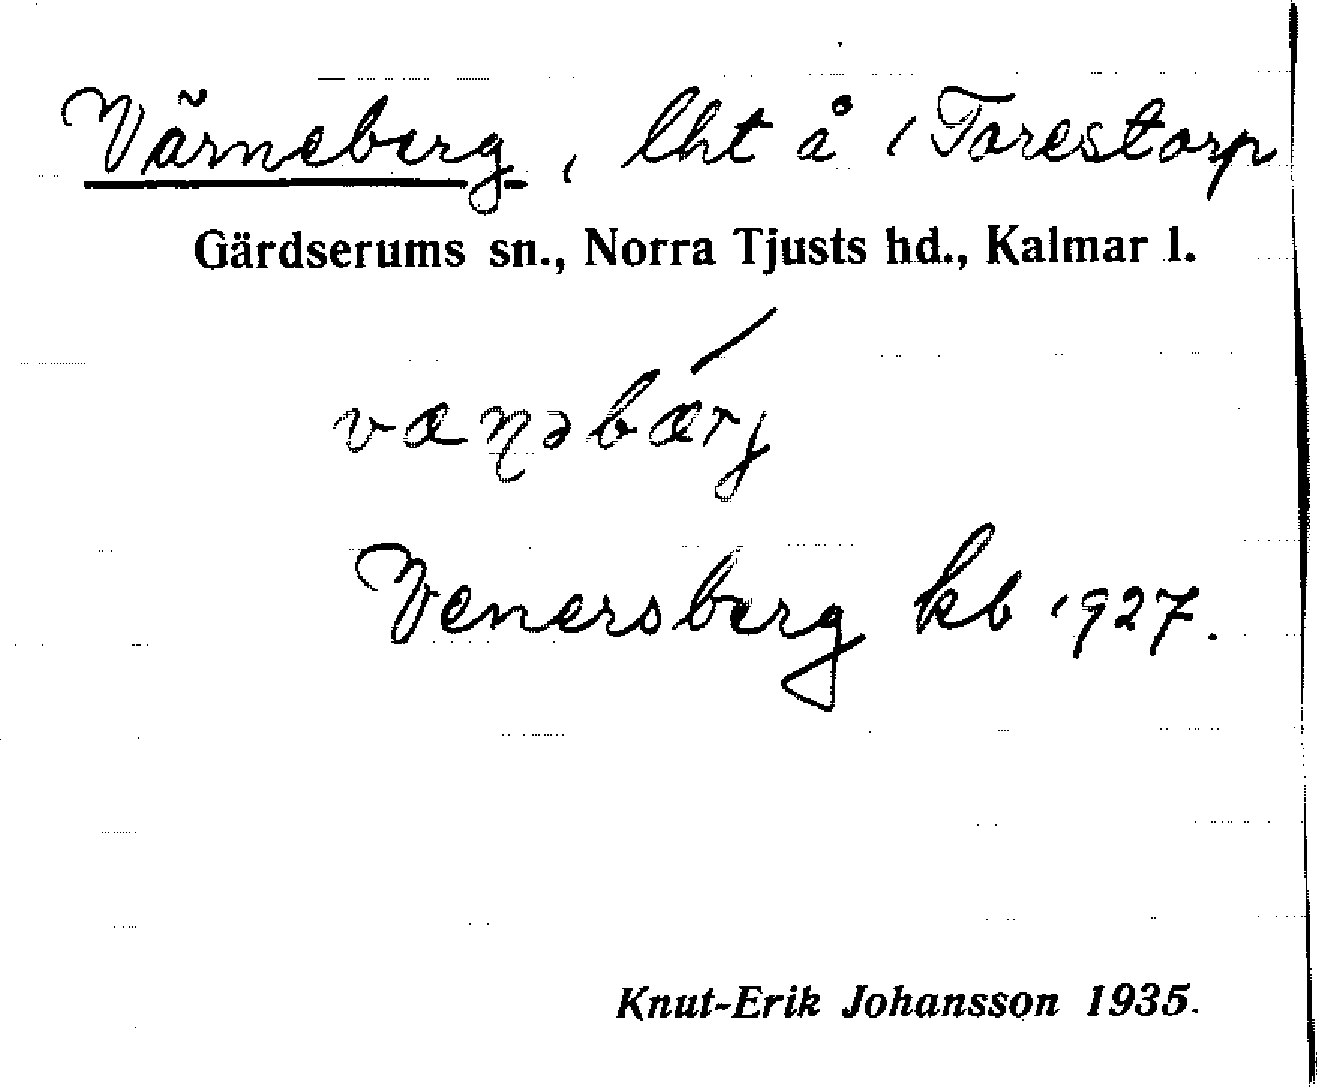 Värneberg, lht å 1 Torestorp
Gärdserums sn., Norra Tjusts hd., Kalmar l.
væɳəbærj
Venersberg kb 1927.
Knut-Erik Johansson 1935.